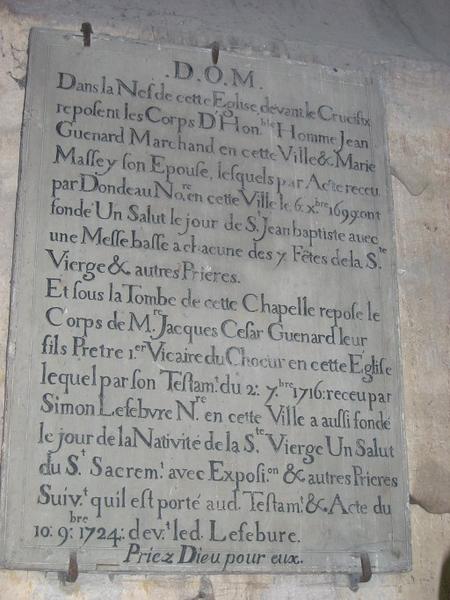 .D.O.M.
Dans la Nef de cette Eglise, devant le Crucifix
reposent les Corps D'Hon.ble Homme Jean
Guenard Marchand en cette Ville & Marie
Massey son Epouse, lesquels par Acte receu
par Dondeau No.re en cette Ville le 6. x.bre 1699. ont
fondé Un Salut le jour de S.t Jean baptiste avec
une Messe basse a chacune des 7. Fêtes de la S.te
Vierge & autres Prieres.
Et sous la Tombe de cette Chapelle repose le
Corps de M.re Jacques Cesar Guenard leur
fils Pretre 1.er Vicaire du Choeur en cette Eglise
lequel par son Testam.t du 2: 7.bre 1716: receu par
Simon Lefebvre N.re en cette Ville a aussi fondé
le jour de la Nativité de la S.te Vierge Un Salut
du S.t Sacrem.t avec Exposi.on & autres Prieres
Suiv.t quil est porté aud. Testam.t & Acte du
10: 9.bre 1724: dev.t led. Lefebure.
Priez Dieu pour eux.